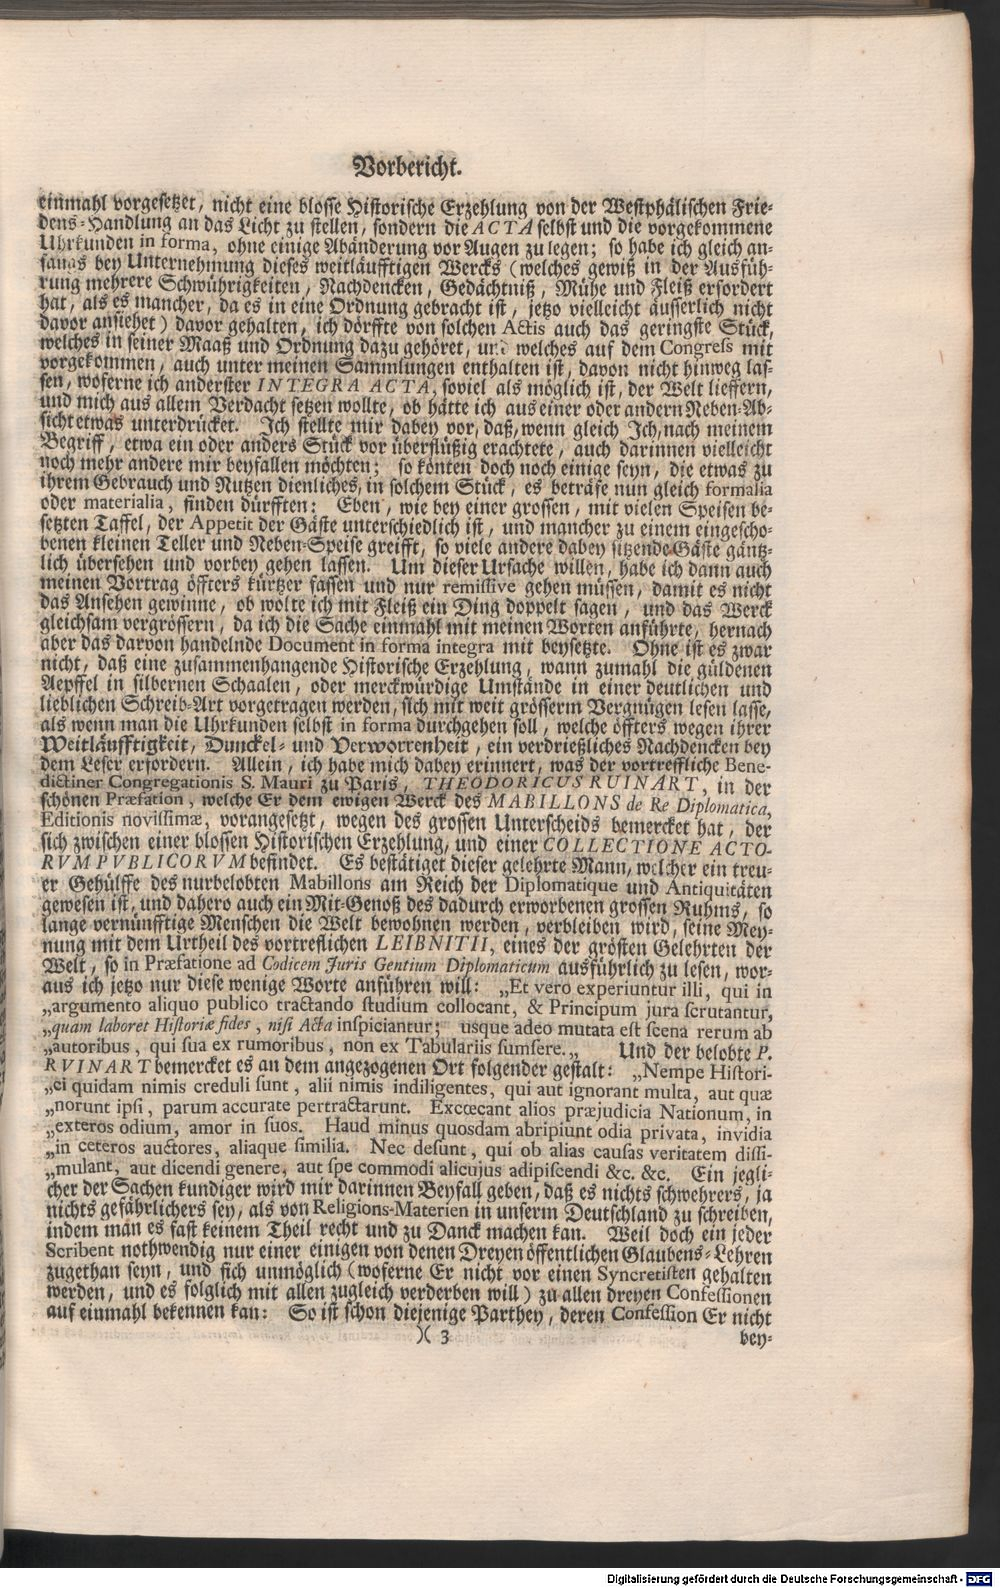 Vorbericht.
einmahl vorgesetzet, nicht eine blosse Historische Erzehlung von der Westphälischen Frie-
dens-Handlung an das Licht zu stellen, sondern die ACTA selbst und die vorgekommene
Uhrkunden in forma, ohne einige Abänderung vor Augen zu legen; so habe ich gleich an-
fangs bey Unternehmung dieses weitläufftigen Wercks (welches gewiß in der Ausfüh-
rung mehrere Schwührigkeiten, Nachdencken, Gedächtniß, Mühe und Fleiß erfordert
hat, als es mancher, da es in eine Ordnung gebracht ist, jetzo vielleicht äusserlich nicht
davor ansiehet) davor gehalten, ich dörffte von solchen Actis auch das geringste Stück,
welches in seiner Maaß und Ordnung dazu gehöret, und welches auf dem Congress mit
vorgekommen, auch unter meinen Sammlungen enthalten ist, davon nicht hinweg las-
sen, woferne ich anderster INTEGRA ACTA, soviel als möglich ist, der Welt lieffern,
und mich aus allem Verdacht setzen wollte, ob hätte ich aus einer oder andern Neben-Ab-
sicht etwas unterdrücket. Ich stellte mir dabey vor, daß, wenn gleich Ich, nach meinem
Begriff, etwa ein oder anders Stück vor überflüßig erachtete, auch darinnen vielleicht
noch mehr andere mir beyfallen möchten; so könten doch noch einige seyn, die etwas zu
ihrem Gebrauch und Nutzen dienliches, in solchem Stück, es beträfe nun gleich formalia
oder materialia, finden dürfften: Eben, wie bey einer grossen, mit vielen Speisen be-
setzten Taffel, der Appetit der Gäste unterschiedlich ist, und mancher zu einem eingescho-
benen kleinen Teller und Neben-Speise greifft, so viele andere dabey sitzende Gäste gäntz-
lich übersehen und vorbey gehen lassen. Um dieser Ursache willen, habe ich dann auch
meinen Vortrag öffters kürtzer fassen und nur remissive gehen müssen, damit es nicht
das Ansehen gewinne, ob wolte ich mit Fleiß ein Ding doppelt sagen, und das Werck
gleichsam vergrössern, da ich die Sache einmahl mit meinen Worten anführte, hernach
aber das darvon handelnde Document in forma integra mit beysetzte. Ohne ist es zwar
nicht, daß eine zusammenhangende Historische Erzehlung, wann zumahl die güldenen
Aepffel in silbernen Schaalen, oder merckwürdige Umstände in einer deutlichen und
lieblichen Schreib-Art vorgetragen werden, sich mit weit grösserm Vergnügen lesen lasse,
als wenn man die Uhrkunden selbst in forma durchgehen soll, welche öffters wegen ihrer
Weitläufftigkeit, Dunckel- und Verworrenheit, ein verdrießliches Nachdencken bey
dem Leser erfordern. Allein, ich habe mich dabey erinnert, was der vortreffliche Bene-
dictiner Congregationis S. Mauri zu Paris, THEODORICUS RUINART, in der
schönen Præfation, welche Er dem ewigen Werck des MABILLONS de Re Diplomatica,
Editionis novissimæ, vorangesetzt, wegen des grossen Unterscheids bemercket hat, der
sich zwischen einer blossen Historischen Erzehlung, und einer COLLECTIONE ACTO-
RVM PVBLICORVM befindet. Es bestätiget dieser gelehrte Mann, welcher ein treu-
er Gehülffe des nurbelobten Mabillons am Reich der Diplomatique und Antiquitäten
gewesen ist, und dahero auch ein Mit-Genoß des dadurch erworbenen grossen Ruhms, so
lange vernünfftige Menschen die Welt bewohnen werden, verbleiben wird, seine Mey-
nung mit dem Urtheil des vortreflichen LEIBNITII, eines der grösten Gelehrten der
Welt, so in Præfatione ad Codicem Juris Gentium Diplomaticum ausführlich zu lesen, wor-
aus ich jetzo nur diese wenige Worte anführen will: „Et vero experiuntur illi, qui in
„argumento aliquo publico tractando studium collocant, & Principum jura scrutantur,
„quam laboret Historiæ fides, nisi Acta inspiciantur; usque adeo mutata est scena rerum ab
„autoribus, qui sua ex rumoribus, non ex Tabulariis sumsere.„ Und der belobte P.
RVINART bemercket es an dem angezogenen Ort folgender gestalt: „Nempe Histori-
„ci quidam nimis creduli sunt, alii nimis indiligentes, qui aut ignorant multa, aut quæ
„norunt ipsi, parum accurate pertractarunt. Excœcant alios præjudicia Nationum, in
„exteros odium, amor in suos. Haud minus quosdam abripiunt odia privata, invidia
„in ceteros auctores, aliaque similia. Nec desunt, qui ob alias causas veritatem dissi-
„mulant, aut dicendi genere, aut spe commodi alicujus adipiscendi &c. &c. Ein jegli-
cher der Sachen kundiger wird mir darinnen Beyfall geben, daß es nichts schwehrers, ja
nichts gefährlichers sey, als von Religions-Materien in unserm Deutschland zu schreiben,
indem man es fast keinem Theil recht und zu Danck machen kan. Weil doch ein jeder
Scribent nothwendig nur einer einigen von denen Dreyen öffentlichen Glaubens-Lehren
zugethan seyn, und sich unmöglich (woferne Er nicht vor einen Syncretisten gehalten
werden, und es folglich mit allen zugleich verderben will) zu allen dreyen Confessionen
auf einmahl bekennen kan: So ist schon diejenige Parthey, deren Confession Er nicht
)( 3 bey-
Digitalisierung gefördert durch die Deutsche Forschungsgemeinschaft - DFG